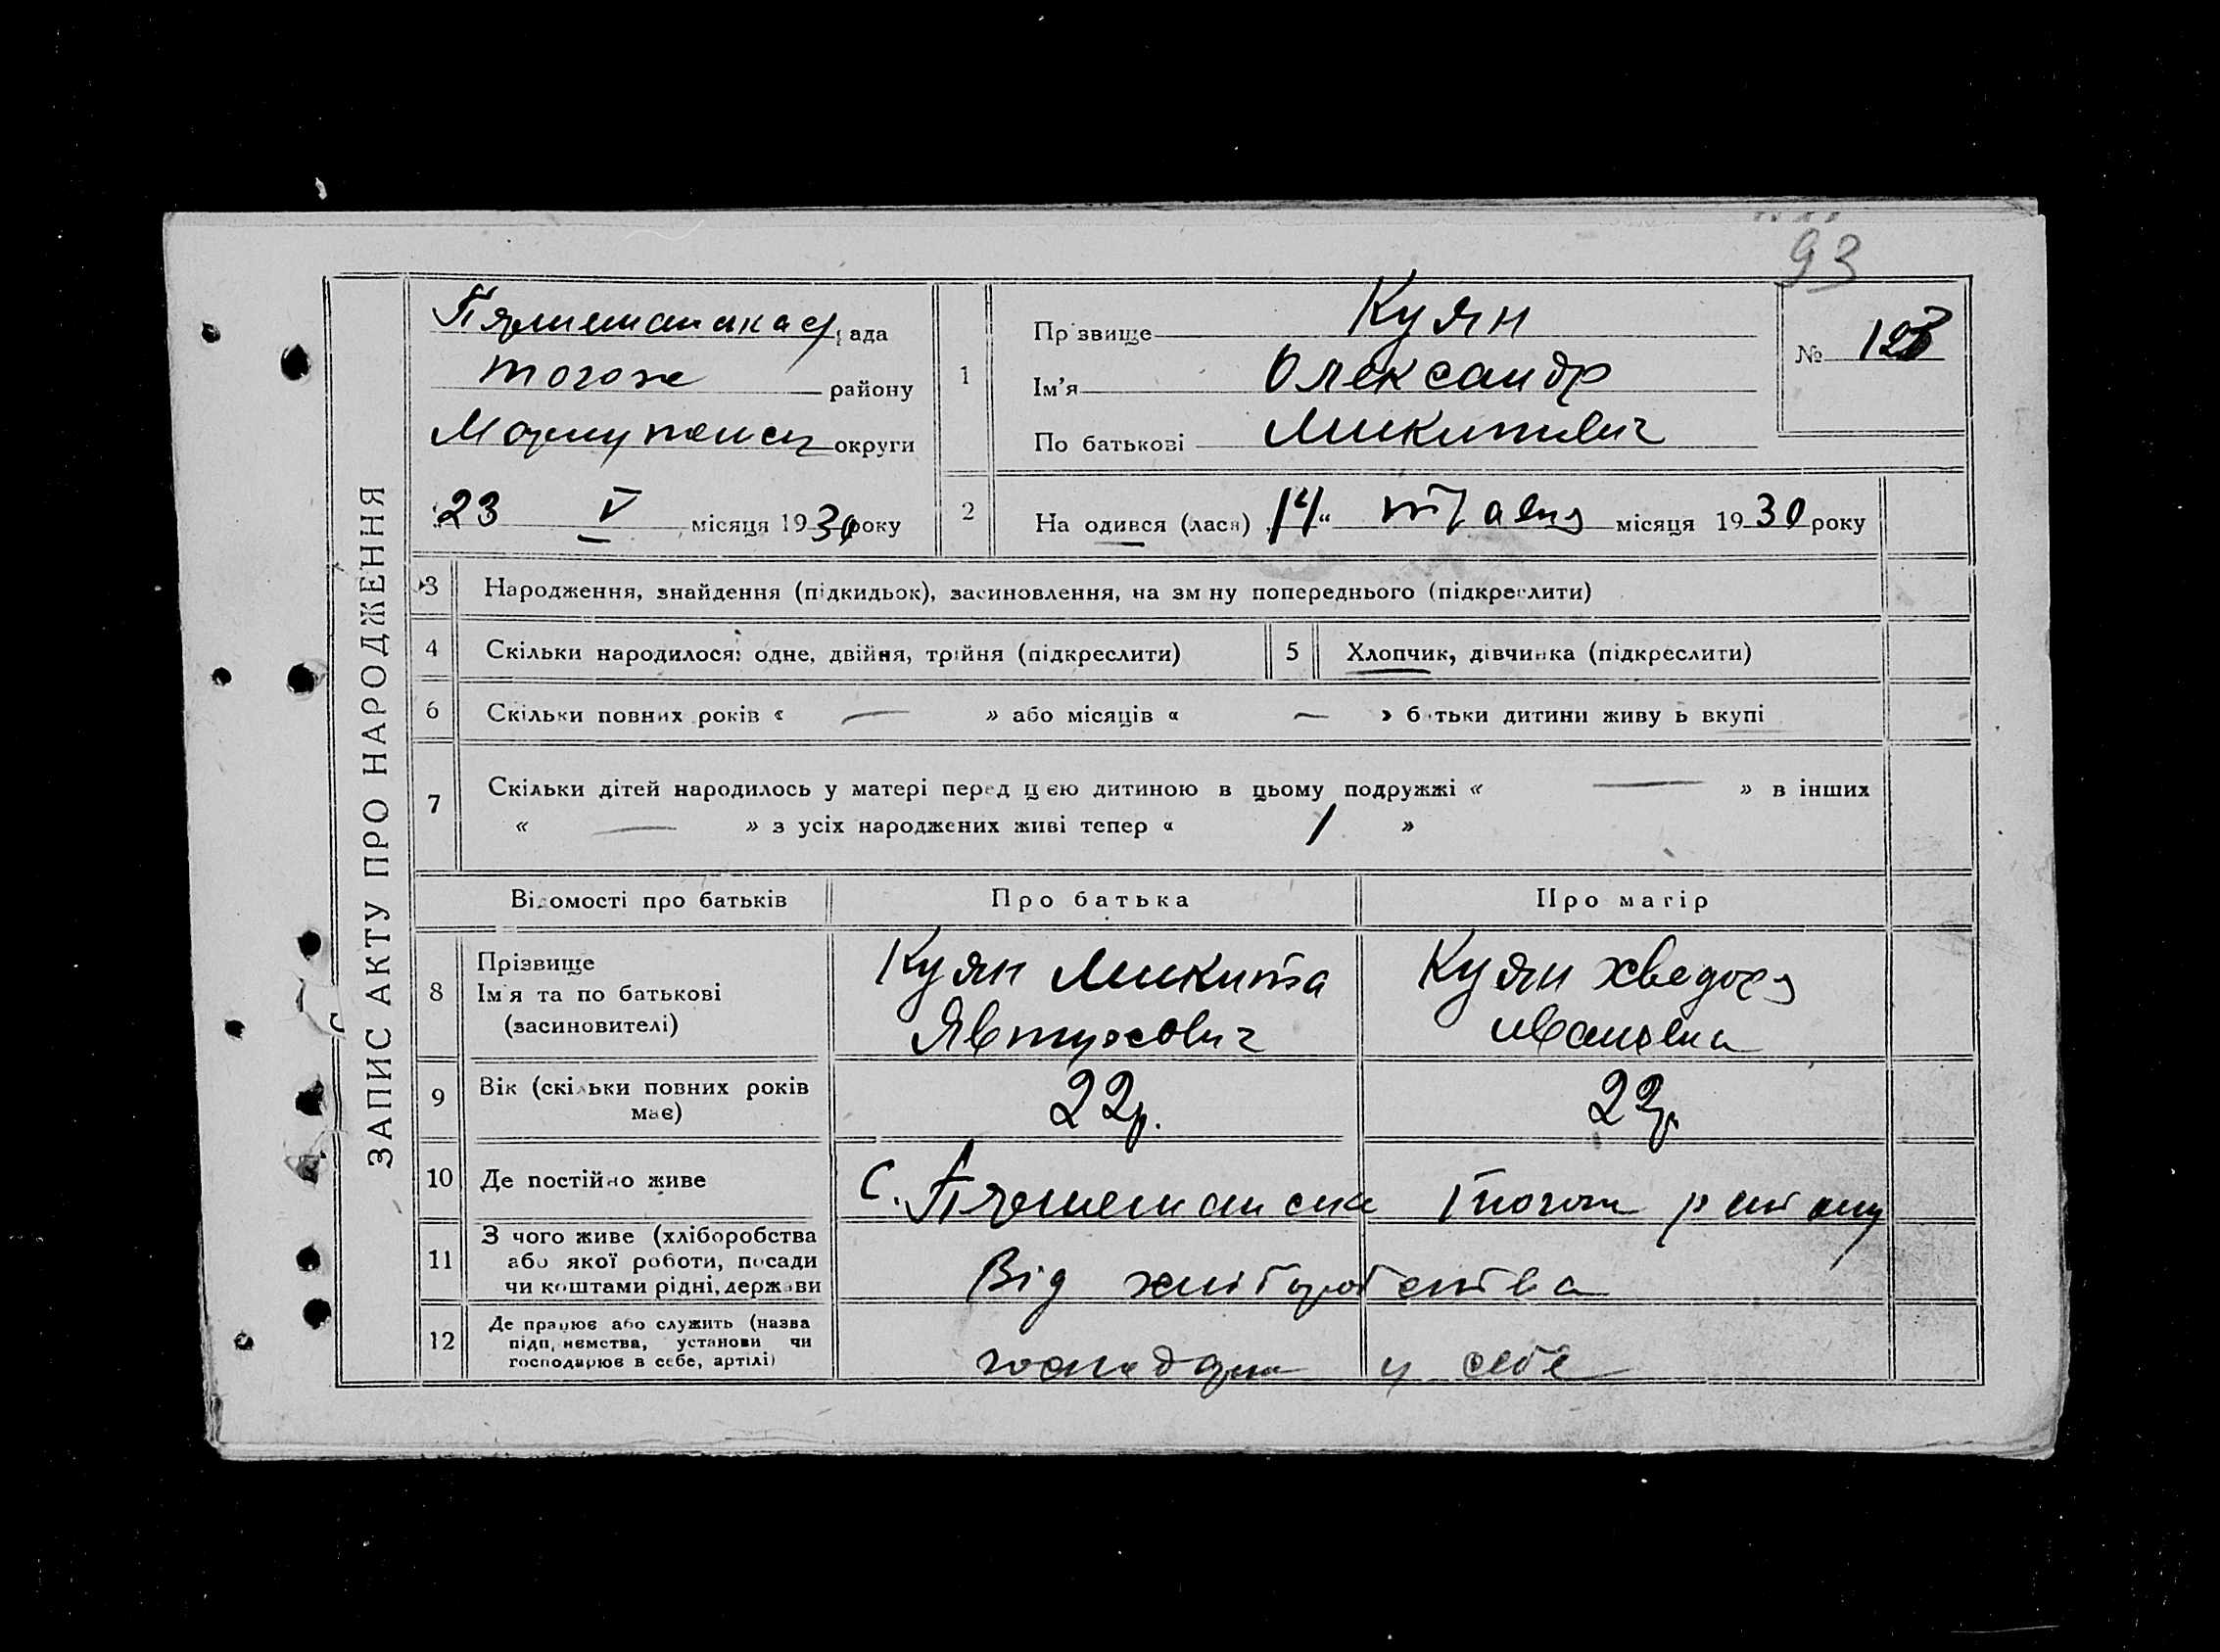 93
ЗАПИС АКТУ ПРО НАРОДЖЕННЯ
рада
тогож району
округи
23 V місяця 1930 року
1
Прізвище Куян
Ім'я Олександр
По батькові Микитович
№ 123
2 На одився (лася) 14 " травня місяця 1930 року
3 Народження, знайдення (підкидьок), засиновлення, на зміну попереднього (підкреслити)
4 Скільки народилося: одне, двійня, трійня (підкреслити)
5 Хлопчик, дівчинка (підкреслити)
6 Скільки повних років « — » або місяців « — » батьки дитини живуть вкупі
7 Скільки дітей народилось у матері перед цією дитиною в цьому подружжі « — » в інших
« — » з усіх народжених живі тепер « 1 »
Відомості про батьків
Про батька
Про матір
8 Прізвище
Ім'я та по батькові
(засиновителі)
Куян Микита
Явтухович
Куян Хведора
Ивановна
9 Вік (скільки повних років
має)
22р.
22р.
10 Де постійно живе
с. тогож району
11 З чого живе (хліборобства
або якої роботи, посади
чи коштами рідні, держави
Від хліборобства
12 Де працює або служить (назва
підприємства, установи чи
господарює в себе, артілі)
у себе